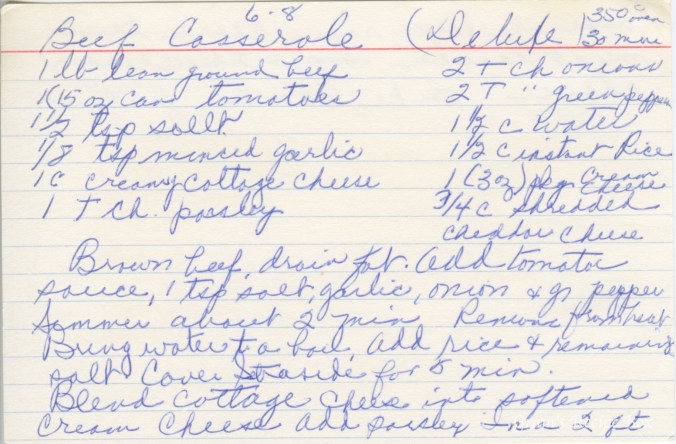 6-8
Beef Casserole (Deluxe) 350° oven
30 min
1 lb lean ground beef
1 (15 oz can tomatoes
1 1/2 tsp sallt
1/8 tsp minced garlic
1 c creamy cottage cheese
1 T ch. parsley
2 T ch onions
2 T " green pepper
1 1/2 c water
1 1/2 c instant Rice
1 (3 oz) pkg cream
cheese
3/4 c shredded
cheddar cheese
Brown beef, drain fat. Add tomatoe
sauce, 1 tsp salt, garlic, onion & gr pepper
Simmer about 2 min Remove from heat
Bring water to a boil, add rice & remaining
salt Cover Set aside for 5 min.
Blend cottage cheese into softened
cream cheese add parsley In a 2 qt